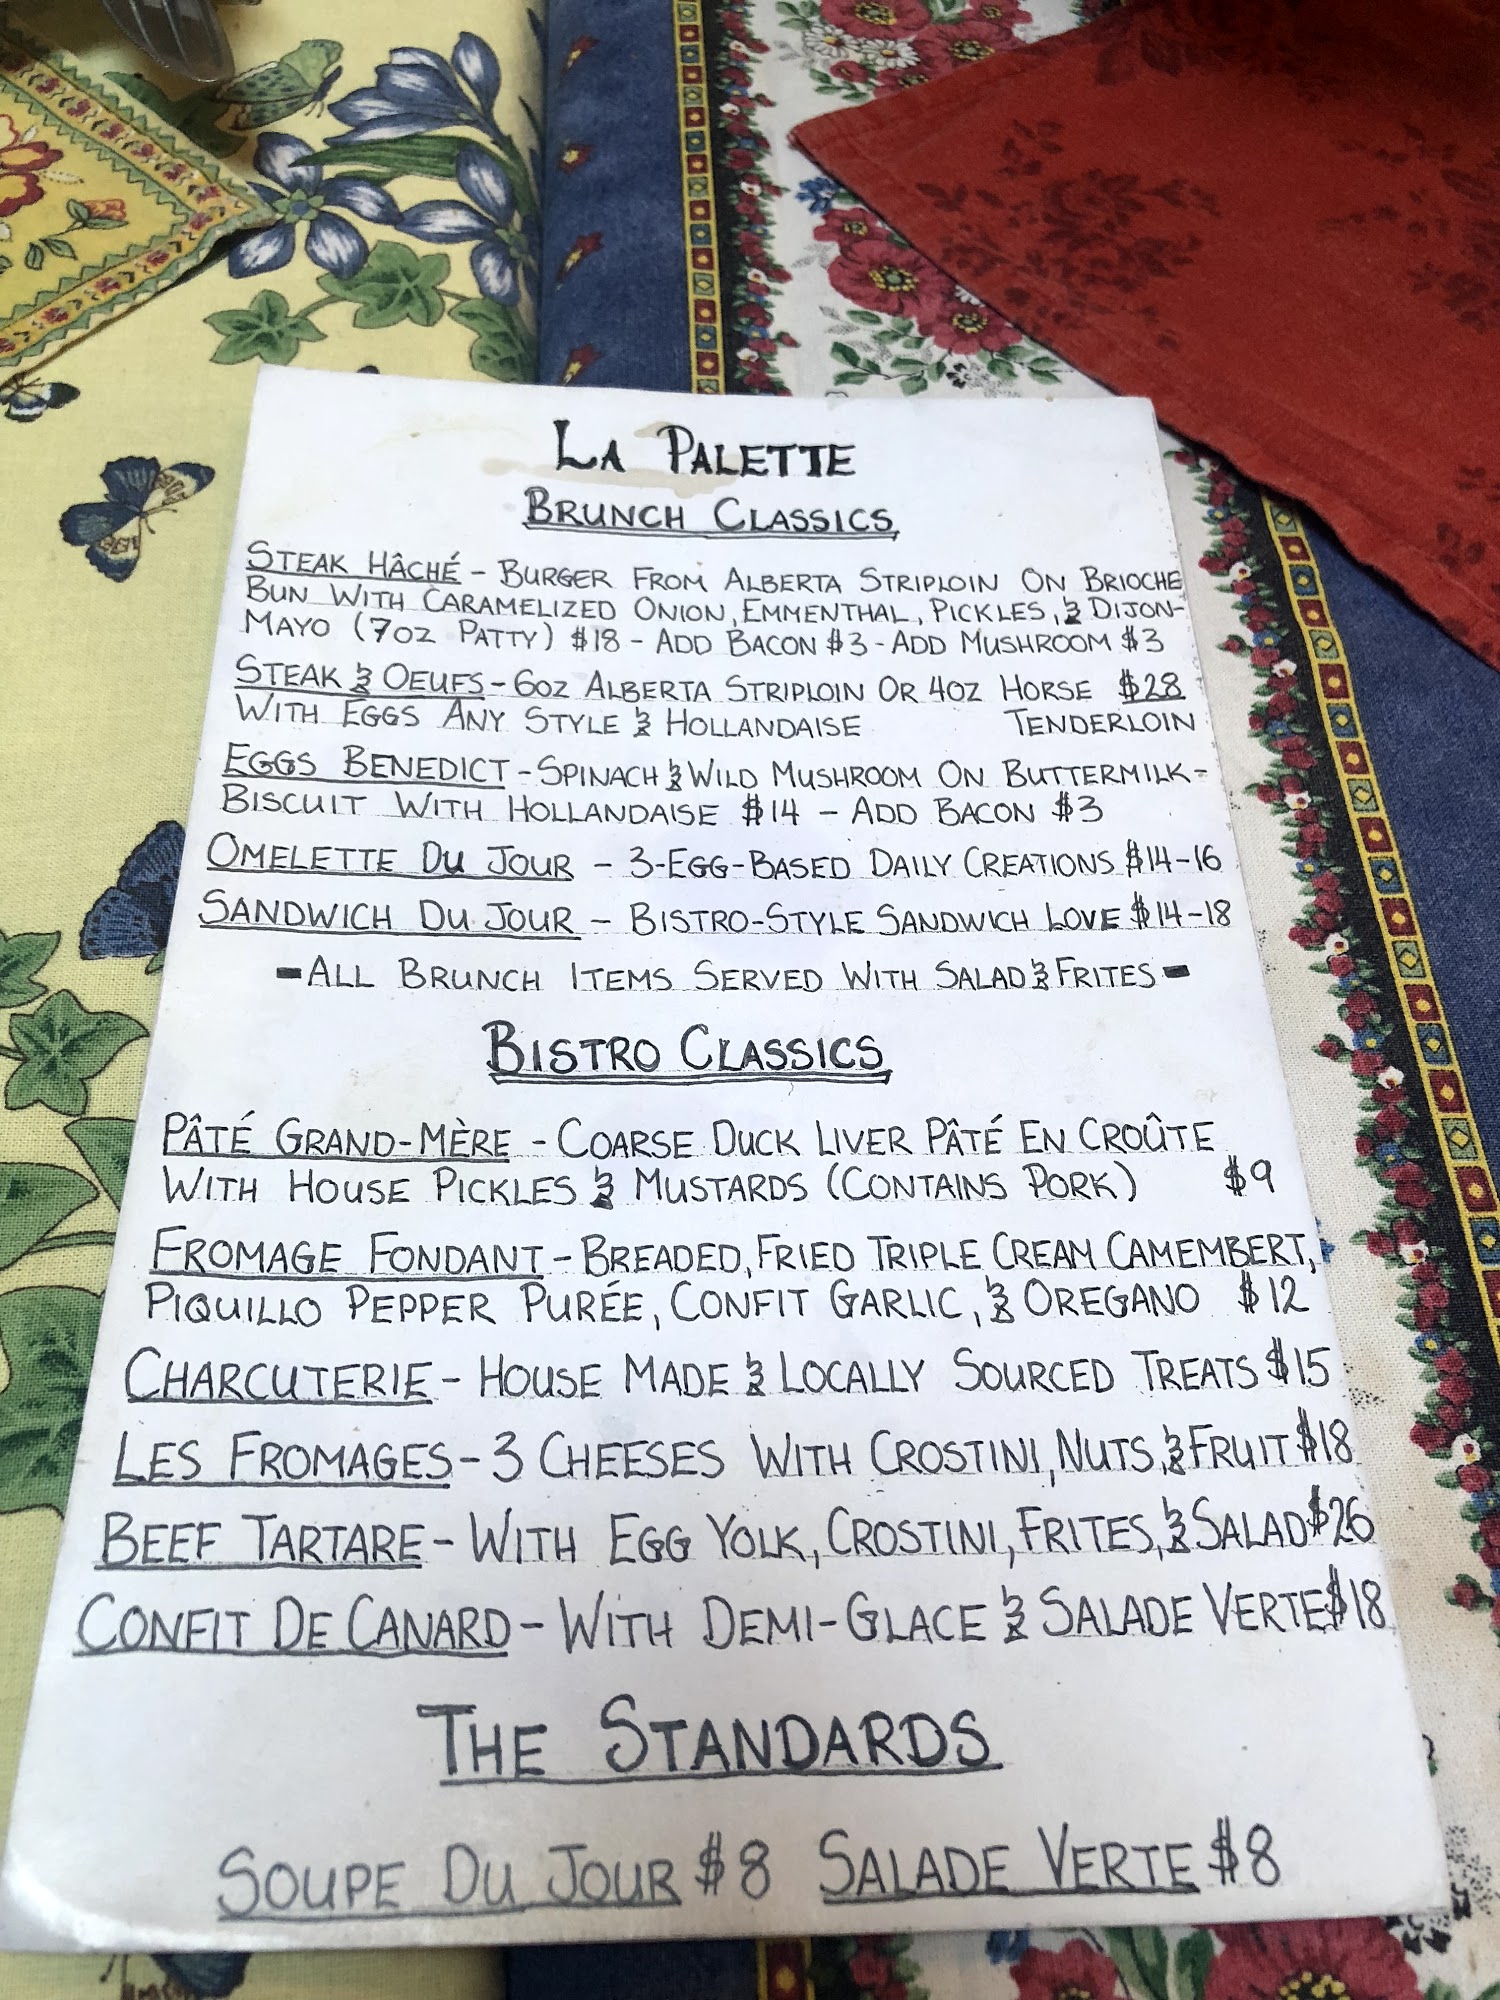 La Palette
Brunch Classics
Steak Hâché - Burger From Alberta Striploin On Brioche
Bun With Caramelized Onion, Emmenthal, Pickles, & Dijon-
Mayo (7oz Patty) $18 - Add Bacon $3 - Add Mushroom $3
Steak & Oeufs - 6oz Alberta Striploin Or 4oz Horse $28
With Eggs Any Style & Hollandaise Tenderloin
Eggs Benedict - Spinach & Wild Mushroom On Buttermilk-
Biscuit With Hollandaise $14 - Add Bacon $3
Omelette Du Jour - 3-Egg-Based Daily Creations $14-16
Sandwich Du Jour - Bistro-Style Sandwich Love $14-18
- All Brunch Items Served With Salad & Frites -
Bistro Classics
Pâté Grand-Mère - Coarse Duck Liver Pâté En Croûte
With House Pickles & Mustards (Contains Pork) $9
Fromage Fondant - Breaded, Fried Triple Cream Camembert,
Piquillo Pepper Purée, Confit Garlic, & Oregano $12
Charcuterie - House Made & Locally Sourced Treats $15
Les Fromages - 3 Cheeses With Crostini, Nuts, & Fruit $18
Beef Tartare - With Egg Yolk, Crostini, Frites, & Salad $26
Confit De Canard - With Demi-Glace & Salade Verte $18
The Standards
Soupe Du Jour $8 Salade Verte $8